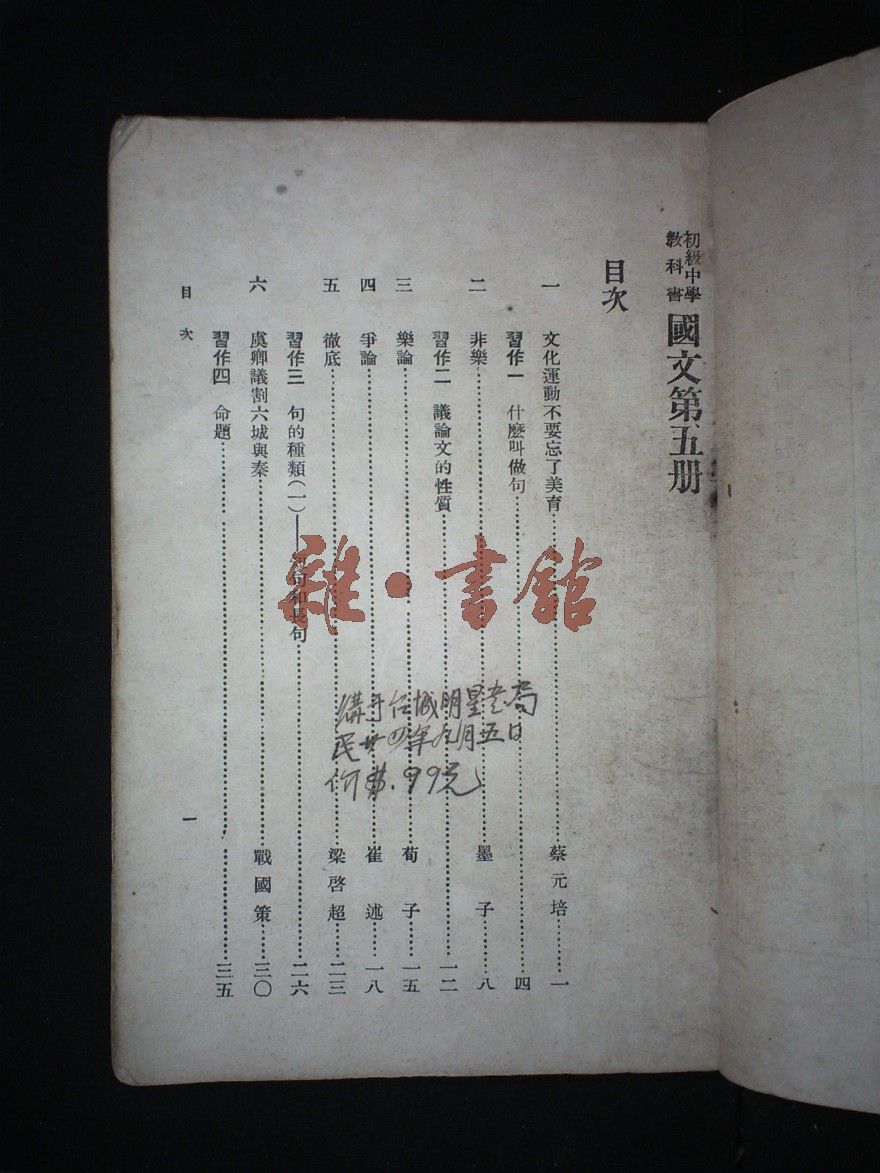 初級中學
教科書
國文第五册
目次
一 文化運動不要忘了美育 蔡元培 一
習作一 什麼叫做句 四
二 非樂 墨子 八
習作二 議論文的性質 一二
三 樂論 荀子 一五
四 爭論 崔述 一八
五 徹底 梁啓超 二三
習作三 句的種類(一)——短句和長句 二六
六 虞卿議割六城與秦 戰國策 三〇
習作四 命題 三五
目次 一
雜·書館
購于任城明星書局
民廿四年九月五日
價費.99元